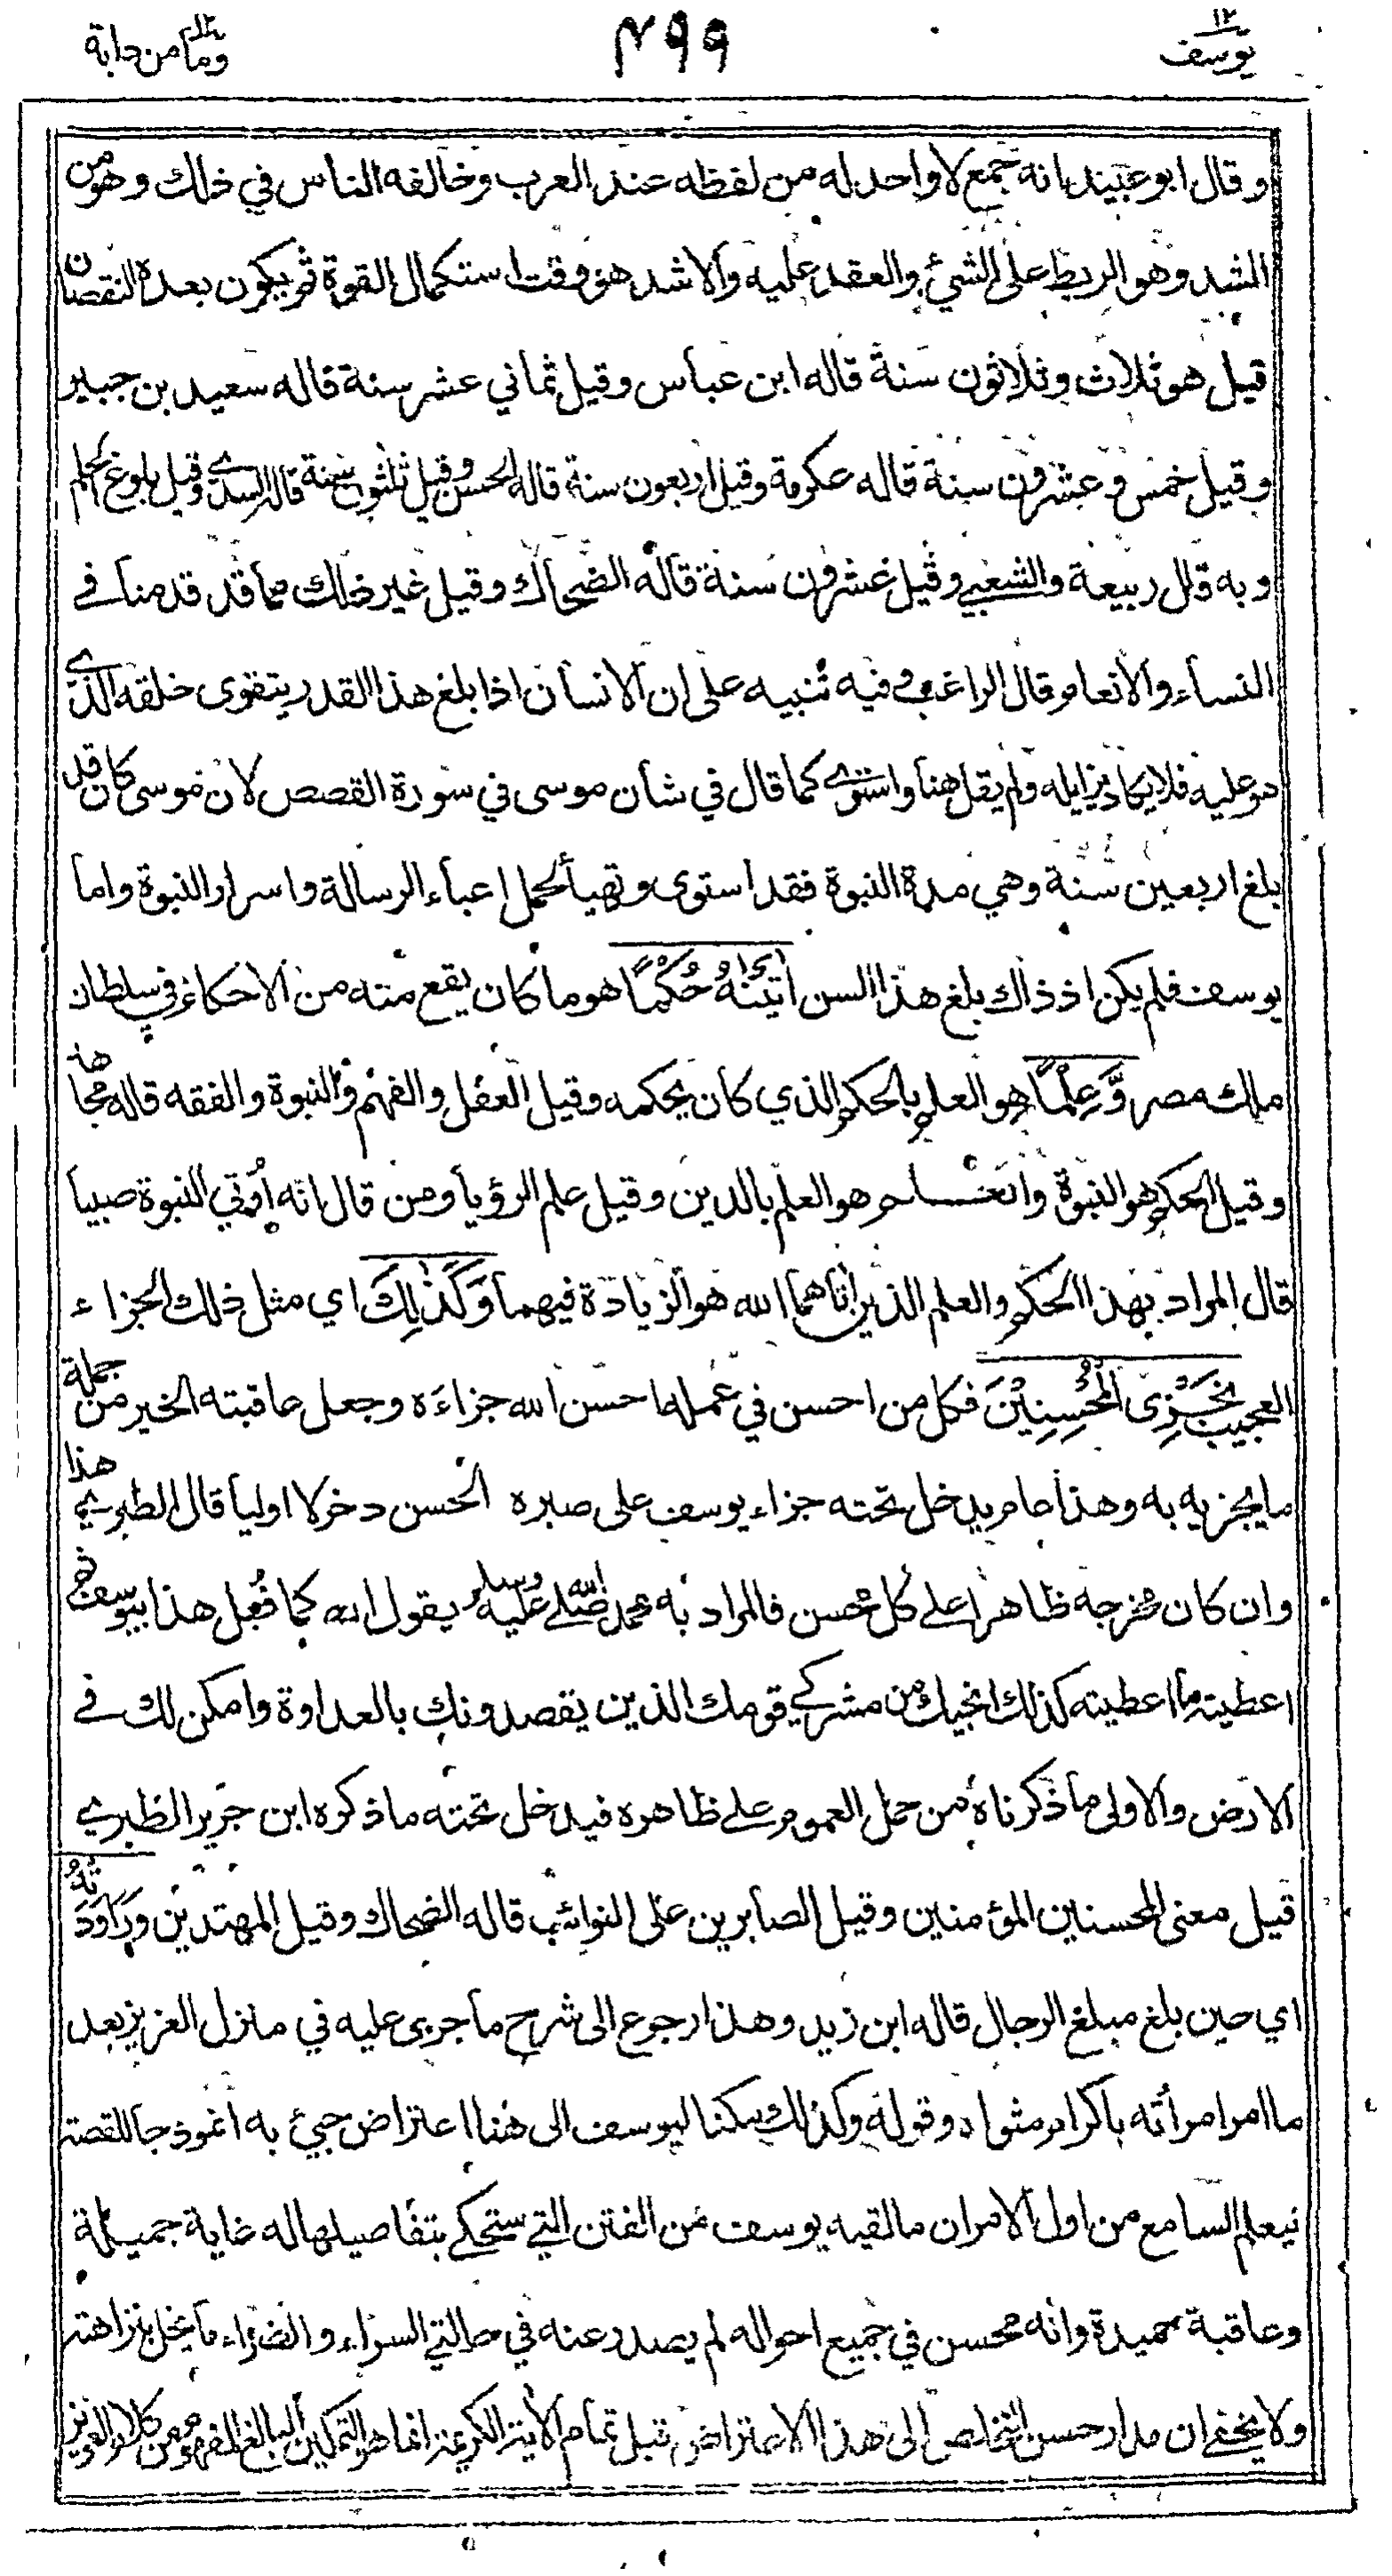 يوسف ١٢
٤٩٩
وما من دابة ١٢
وقال ابو عبيد انه جمع لا واحد له من لفظه عند العرب وخالفه الناس في ذلك وهو من
الشد وهو الربط على الشيئ والعقد عليه والاشد هو وقت استكمال القوة ثم يكون بعده النقصان
قيل هو ثلاث وثلاثون سنة قاله ابن عباس وقيل ثماني عشر سنة قاله سعيد بن جبير
وقيل خمس وعشرون سنة قاله عكرمة وقيل اربعون سنة قاله الحسن وقيل ثلثون سنة قاله السدي وقيل بلوغ الحلم
وبه قال ربيعة والشعبي وقيل عشرون سنة قاله الضحاك وقيل غير ذلك مما قد قدمنا في
النساء والانعام وقال الراغب وفيه تنبيه على ان الانسان اذا بلغ هذا القدر يتقوى خلقه الذي
هو عليه فلا يكاد يزايله ولم يقل هنا واستوى كما قال في شان موسى في سورة القصص لان موسى كان قد
بلغ اربعين سنة وهي مدة النبوة فقد استوى وتهيأ لحمل اعباء الرسالة واسرار النبوة واما
يوسف فلم يكن اذ ذاك بلغ هذا السن اٰتَيْنٰهُ حُكْمًا هو ما كان يقع منه من الاحكام في سلطان
ملك مصر وَّعِلْمًا هو العلم بالحكم الذي كان يحكمه وقيل العقل والفهم والنبوة والفقه قاله مجاهد
وقيل الحكم هو النبوة والعلم هو العلم بالدين وقيل علم الرؤيا ومن قال انه اُوتي النبوة صبيا
قال المراد بهذا الحكم والعلم الذين اٰتاهما الله هو الزيادة فيهما وَكَذٰلِكَ اي مثل ذلك الجزاء
العجيب نَجْزِى الْمُحْسِنِيْنَ فكل من احسن في عمله احسن الله جزاءه وجعل عاقبته الخير من جملة
ما يجزيه به وهذا عام يدخل تحته جزاء يوسف على صبره الحسن دخولا اوليا قال الطبري هذا
وان كان مخرجه ظاهرا على كل محسن فالمراد به محمد صلى الله عليه وسلم يقول الله كما فُعل هذا بيوسف ثم
اعطيته ما اعطيته كذلك انجيك من مشركي قومك الذين يقصدونك بالعداوة وامكن لك في
الارض والاولى ما ذكرناه من حمل العموم على ظاهره فيدخل تحته ما ذكره ابن جرير الطبري
قيل معنى المحسنين المؤمنين وقيل الصابرين على النوائب قاله الضحاك وقيل المهتدين وَرَاوَدَتْهُ
اي حين بلغ مبلغ الرجال قاله ابن زيد وهذا رجوع الى شرح ما جرى عليه في منزل العزيز بعد
ما امر امرأته باكرام مثواه وقوله وكذلك مكنا ليوسف الى هنا اعتراض جيئ به انموذجا للقصة
ليعلم السامع من اول الامر ان ما لقيه يوسف من الفتن التي ستحكى بتفاصيلها له غاية جميلة
وعاقبة حميدة وانه محسن في جميع احواله لم يصدر عنه في حالتي السراء والضراء ما يخل بنزاهته
ولا يخفى ان مدار حسن التخلص الى هذا الاعتراض قبل تمام الآية الكريمة انما هو التمكين البالغ المفهوم من كلام العزيز